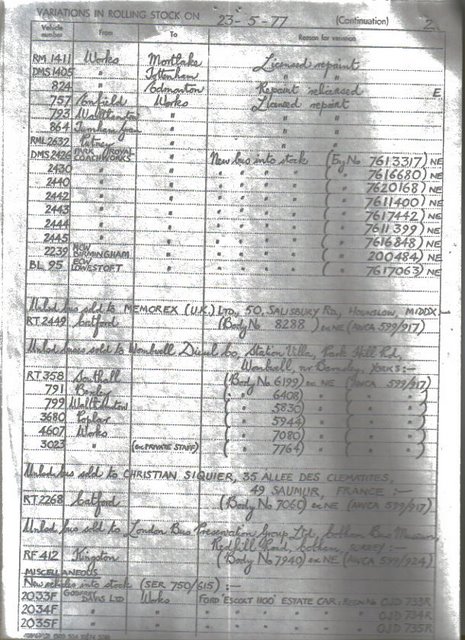 VARIATIONS IN ROLLING STOCK ON 23-5-77 (Continuation) 2.
Vehicle number From To Reason for variation
RM 1411 Works Mortlake Licensed repaint
DMS 1405 " Tottenham " "
824 " Edmonton Repaint relicensed E
757 Enfield Works Licensed repaint
793 Walthamstow " " "
864 Turnham Green " " "
RML 2632 Putney " " "
DMS 2426 PARK ROYAL COACHWORKS " New bus into stock (Eng No 7613317) NE
2430 " " " " " " ( " 7616680) NE
2440 " " " " " " ( " 7620168) NE
2442 " " " " " " ( " 7611400) NE
2443 " " " " " " ( " 7617442) NE
2444 " " " " " " ( " 7611399) NE
2445 " " " " " " ( " 7616848) NE
2239 MCW BIRMINGHAM " " " " " ( " 200484) NE
BL 95 ECW LOWESTOFT " " " " " ( " 7617063) NE
Unlicd bus sold to MEMOREX (U.K.) LTD, 50, SALISBURY RD, HOUNSLOW, MIDDX:-
RT 2449 Catford (Body No 8288) ex NE (AWCA 599/917)
Unlicd buses sold to Wombwell Diesel Co, Station Villa, Park Hill Rd,
Wombwell, nr Barnsley, YORKS:-
RT 358 Southall (Body No 6199) ex NE (AWCA 599/917)
791 Bexley ( " 6408) " ( " )
799 Walthamstow ( " 5830) " ( " )
3680 Poplar ( " 5944) " ( " )
4607 Works ( " 7080) " ( " )
3023 " (ex PRIVATE STAFF) ( " 7764) " ( " )
Unlicd bus sold to CHRISTIAN SIQUIER, 35 ALLEE DES CLEMATITES,
49 SAUMUR, FRANCE:-
RT 2268 Catford (Body No 7060) ex NE (AWCA 599/917)
Unlicd bus sold to London Bus Preservation Group Ltd, Cobham Bus Museum,
Redhill Road, Cobham, SURREY:-
RF 412 Kingston (Body No 7940) ex NE (AWCA 599/924)
MISCELLANEOUS
New vehicles into stock (SER 750/615):-
2033F DAVIS LTD Works FORD 'ESCORT 1100' ESTATE CAR, REGN No OJD 733R
2034F " " " " " " OJD 734R
2035F " " " " " " OJD 735R